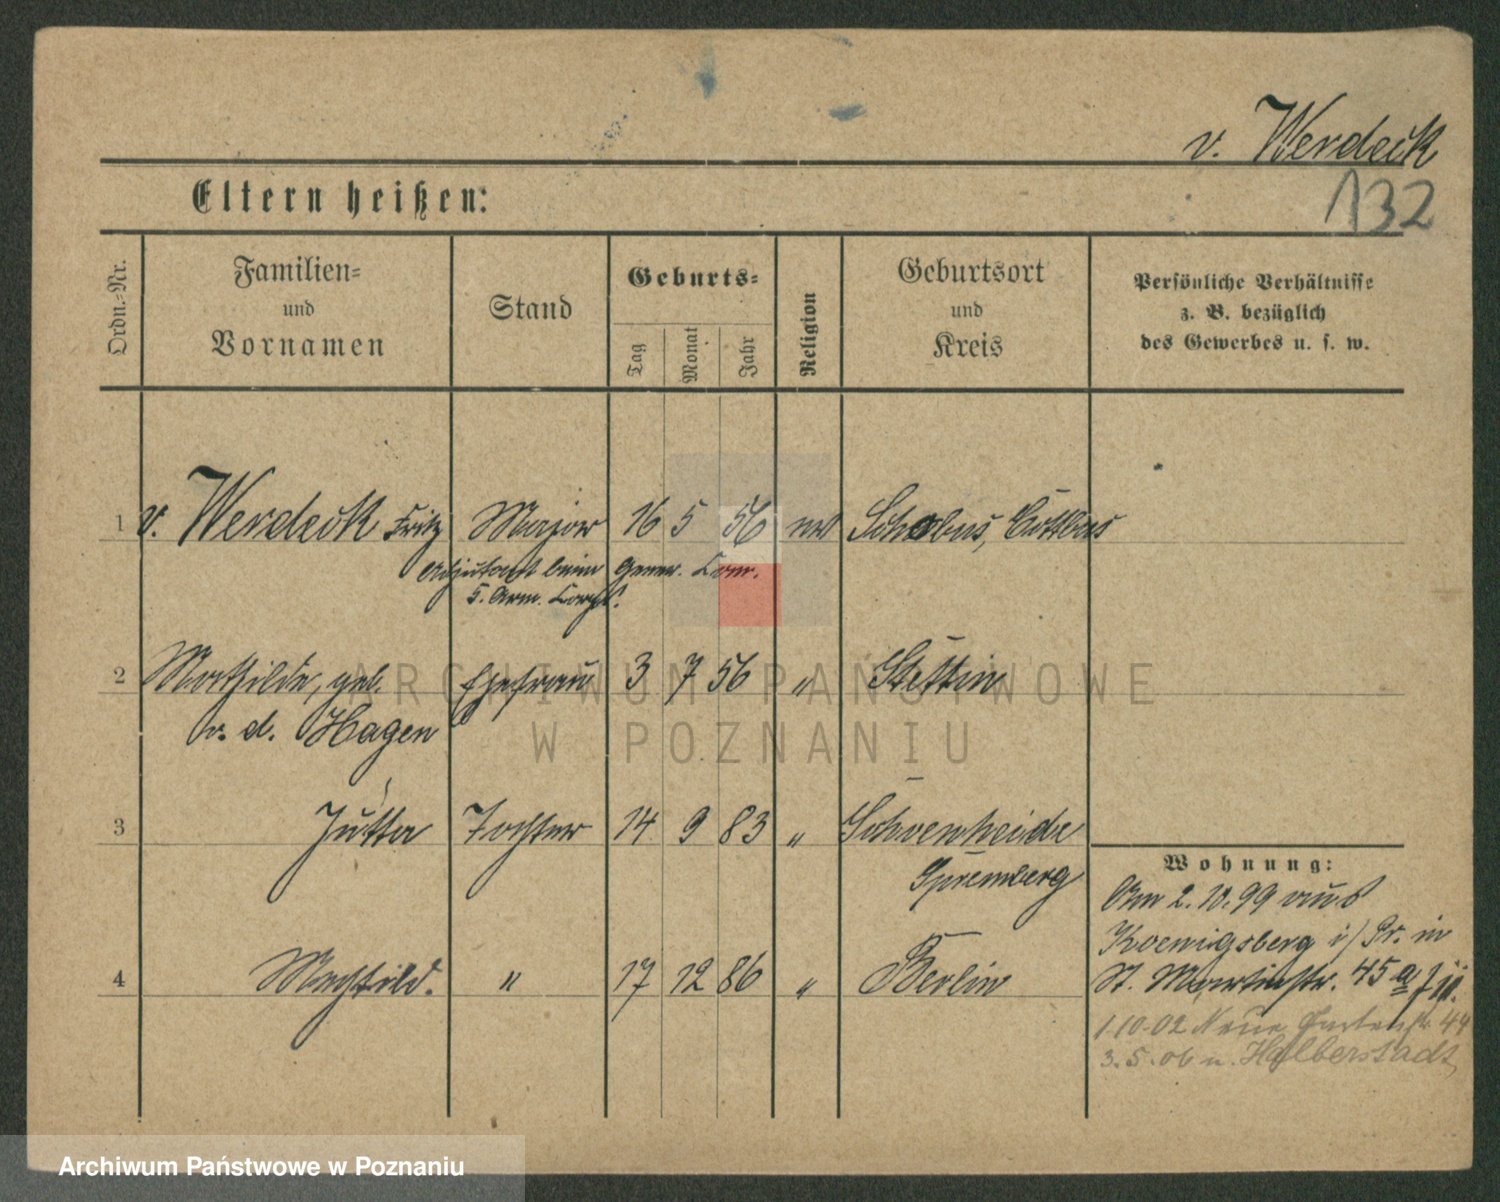 v. Werdeck
132
Eltern heißen:
Ordn.-Nr.
Familien-
und
Vornamen
Stand
Geburts-
Tag
Monat
Jahr
Religion
Geburtsort
und
Kreis
Persönliche Verhältnisse
z. B. bezüglich
des Gewerbes u. s. w.
1 v. Werdeck Fritz Major 16 5 56 Schorbus, Cottbus
Adjutant beim Gener. Com.
5. Arm. Corps.
2 Mathilde, geb. Ehefrau 3 7 56 " Stettin
v. d. Hagen
3 Jutta Tochter 14 9 83 " Schoenheide
Spremberg
Wohnung:
Am 2.10.99 aus
Koenigsberg i/Pr. in
4 Mechtild. " 17 12 86 " Berlin
St. Martinstr. 45a
1.10.02 Neue Gartenstr. 44
3.5.06 n. Halberstadt
ARCHIWUM PAŃSTWOWE
W POZNANIU
Archiwum Państwowe w Poznaniu